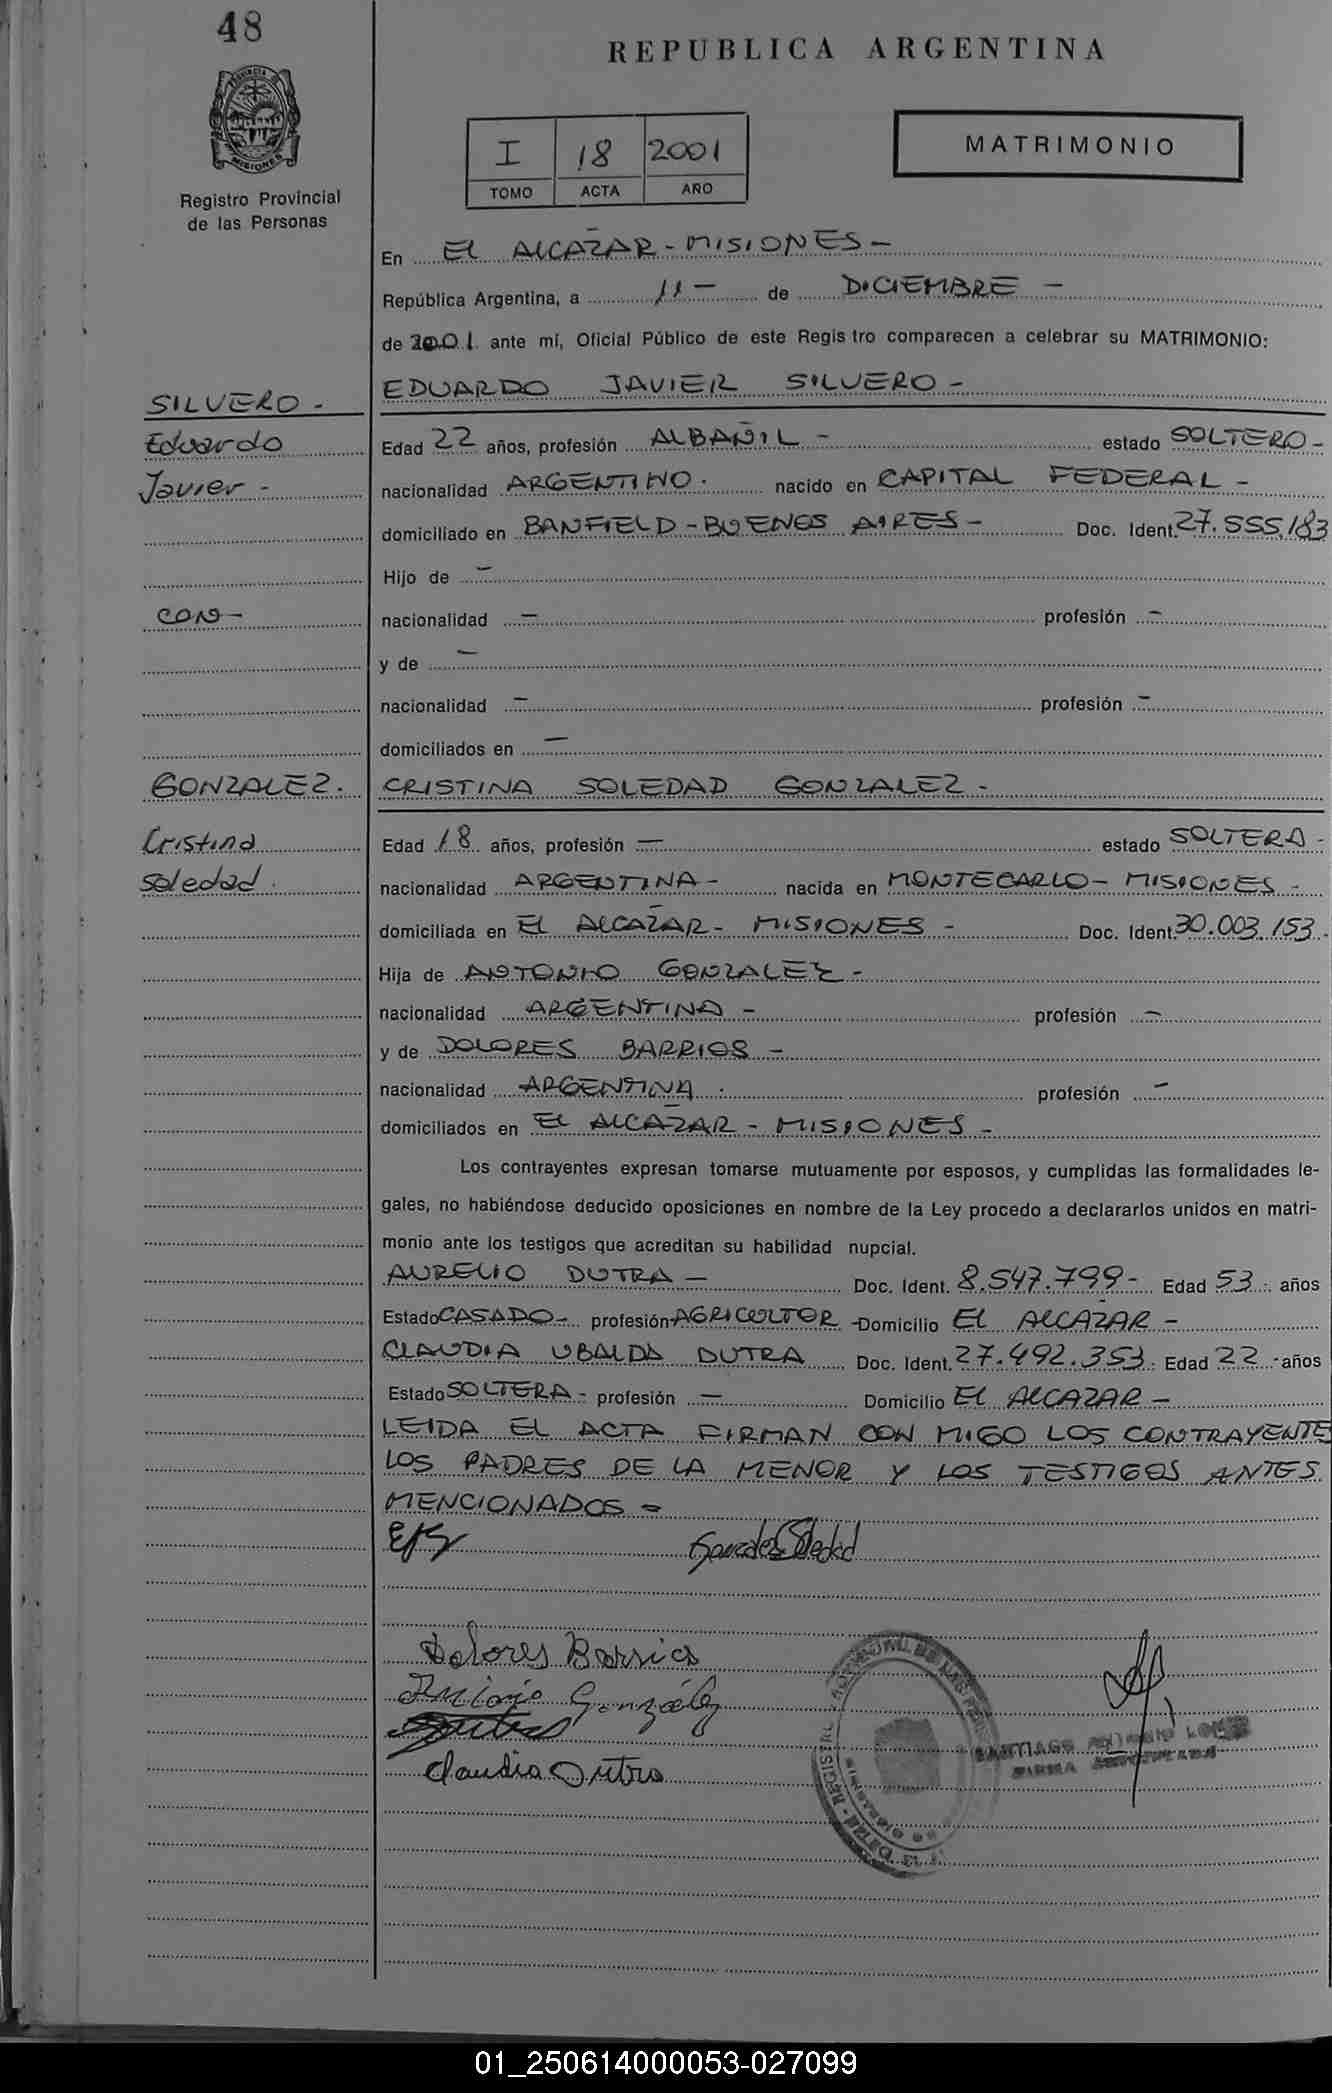 48
REPUBLICA ARGENTINA
PROVINCIA DE
MISIONES
Registro Provincial
de las Personas
I 18 2001
TOMO ACTA AÑO
MATRIMONIO
En EL ALCAZAR - MISIONES -
República Argentina, a 11 - de DICIEMBRE -
de 2001 ante mí, Oficial Público de este Regis tro comparecen a celebrar su MATRIMONIO:
SILVERO -
EDUARDO JAVIER SILVERO -
Eduardo
Edad 22 años, profesión ALBAÑIL - estado SOLTERO -
Javier -
nacionalidad ARGENTINO. nacido en CAPITAL FEDERAL -
domiciliado en BANFIELD - BUENOS AIRES - Doc. Ident. 27.555.183
Hijo de -
CON -
nacionalidad - profesión -
y de -
nacionalidad - profesión -
domiciliados en -
GONZALEZ.
CRISTINA SOLEDAD GONZALEZ -
Cristina
Edad 18 años, profesión - estado SOLTERA -
Soledad.
nacionalidad ARGENTINA - nacida en MONTECARLO - MISIONES -
domiciliada en EL ALCAZAR - MISIONES - Doc. Ident. 30.003.153 -
Hija de ANTONIO GONZALEZ -
nacionalidad ARGENTINA - profesión -
y de DOLORES BARRIOS -
nacionalidad ARGENTINA. profesión -
domiciliados en EL ALCAZAR - MISIONES -
Los contrayentes expresan tomarse mutuamente por esposos, y cumplidas las formalidades le-
gales, no habiéndose deducido oposiciones en nombre de la Ley procedo a declararlos unidos en matri-
monio ante los testigos que acreditan su habilidad nupcial.
AURELIO DUTRA - Doc. Ident. 8.547.799 - Edad 53 años
Estado CASADO - profesión AGRICULTOR - Domicilio EL ALCAZAR -
CLAUDIA UBALDA DUTRA Doc. Ident. 27.492.353. Edad 22 - años
Estado SOLTERA - profesión - Domicilio EL ALCAZAR -
LEIDA EL ACTA FIRMAN CON MIGO LOS CONTRAYENTE
LOS PADRES DE LA MENOR Y LOS TESTIGOS ANTES
MENCIONADOS =
EJS Gonzalez Soledad
Dolores Barrios
Antonio González
Claudia Dutra
SANTIAGO
FIRMA
01_250614000053-027099